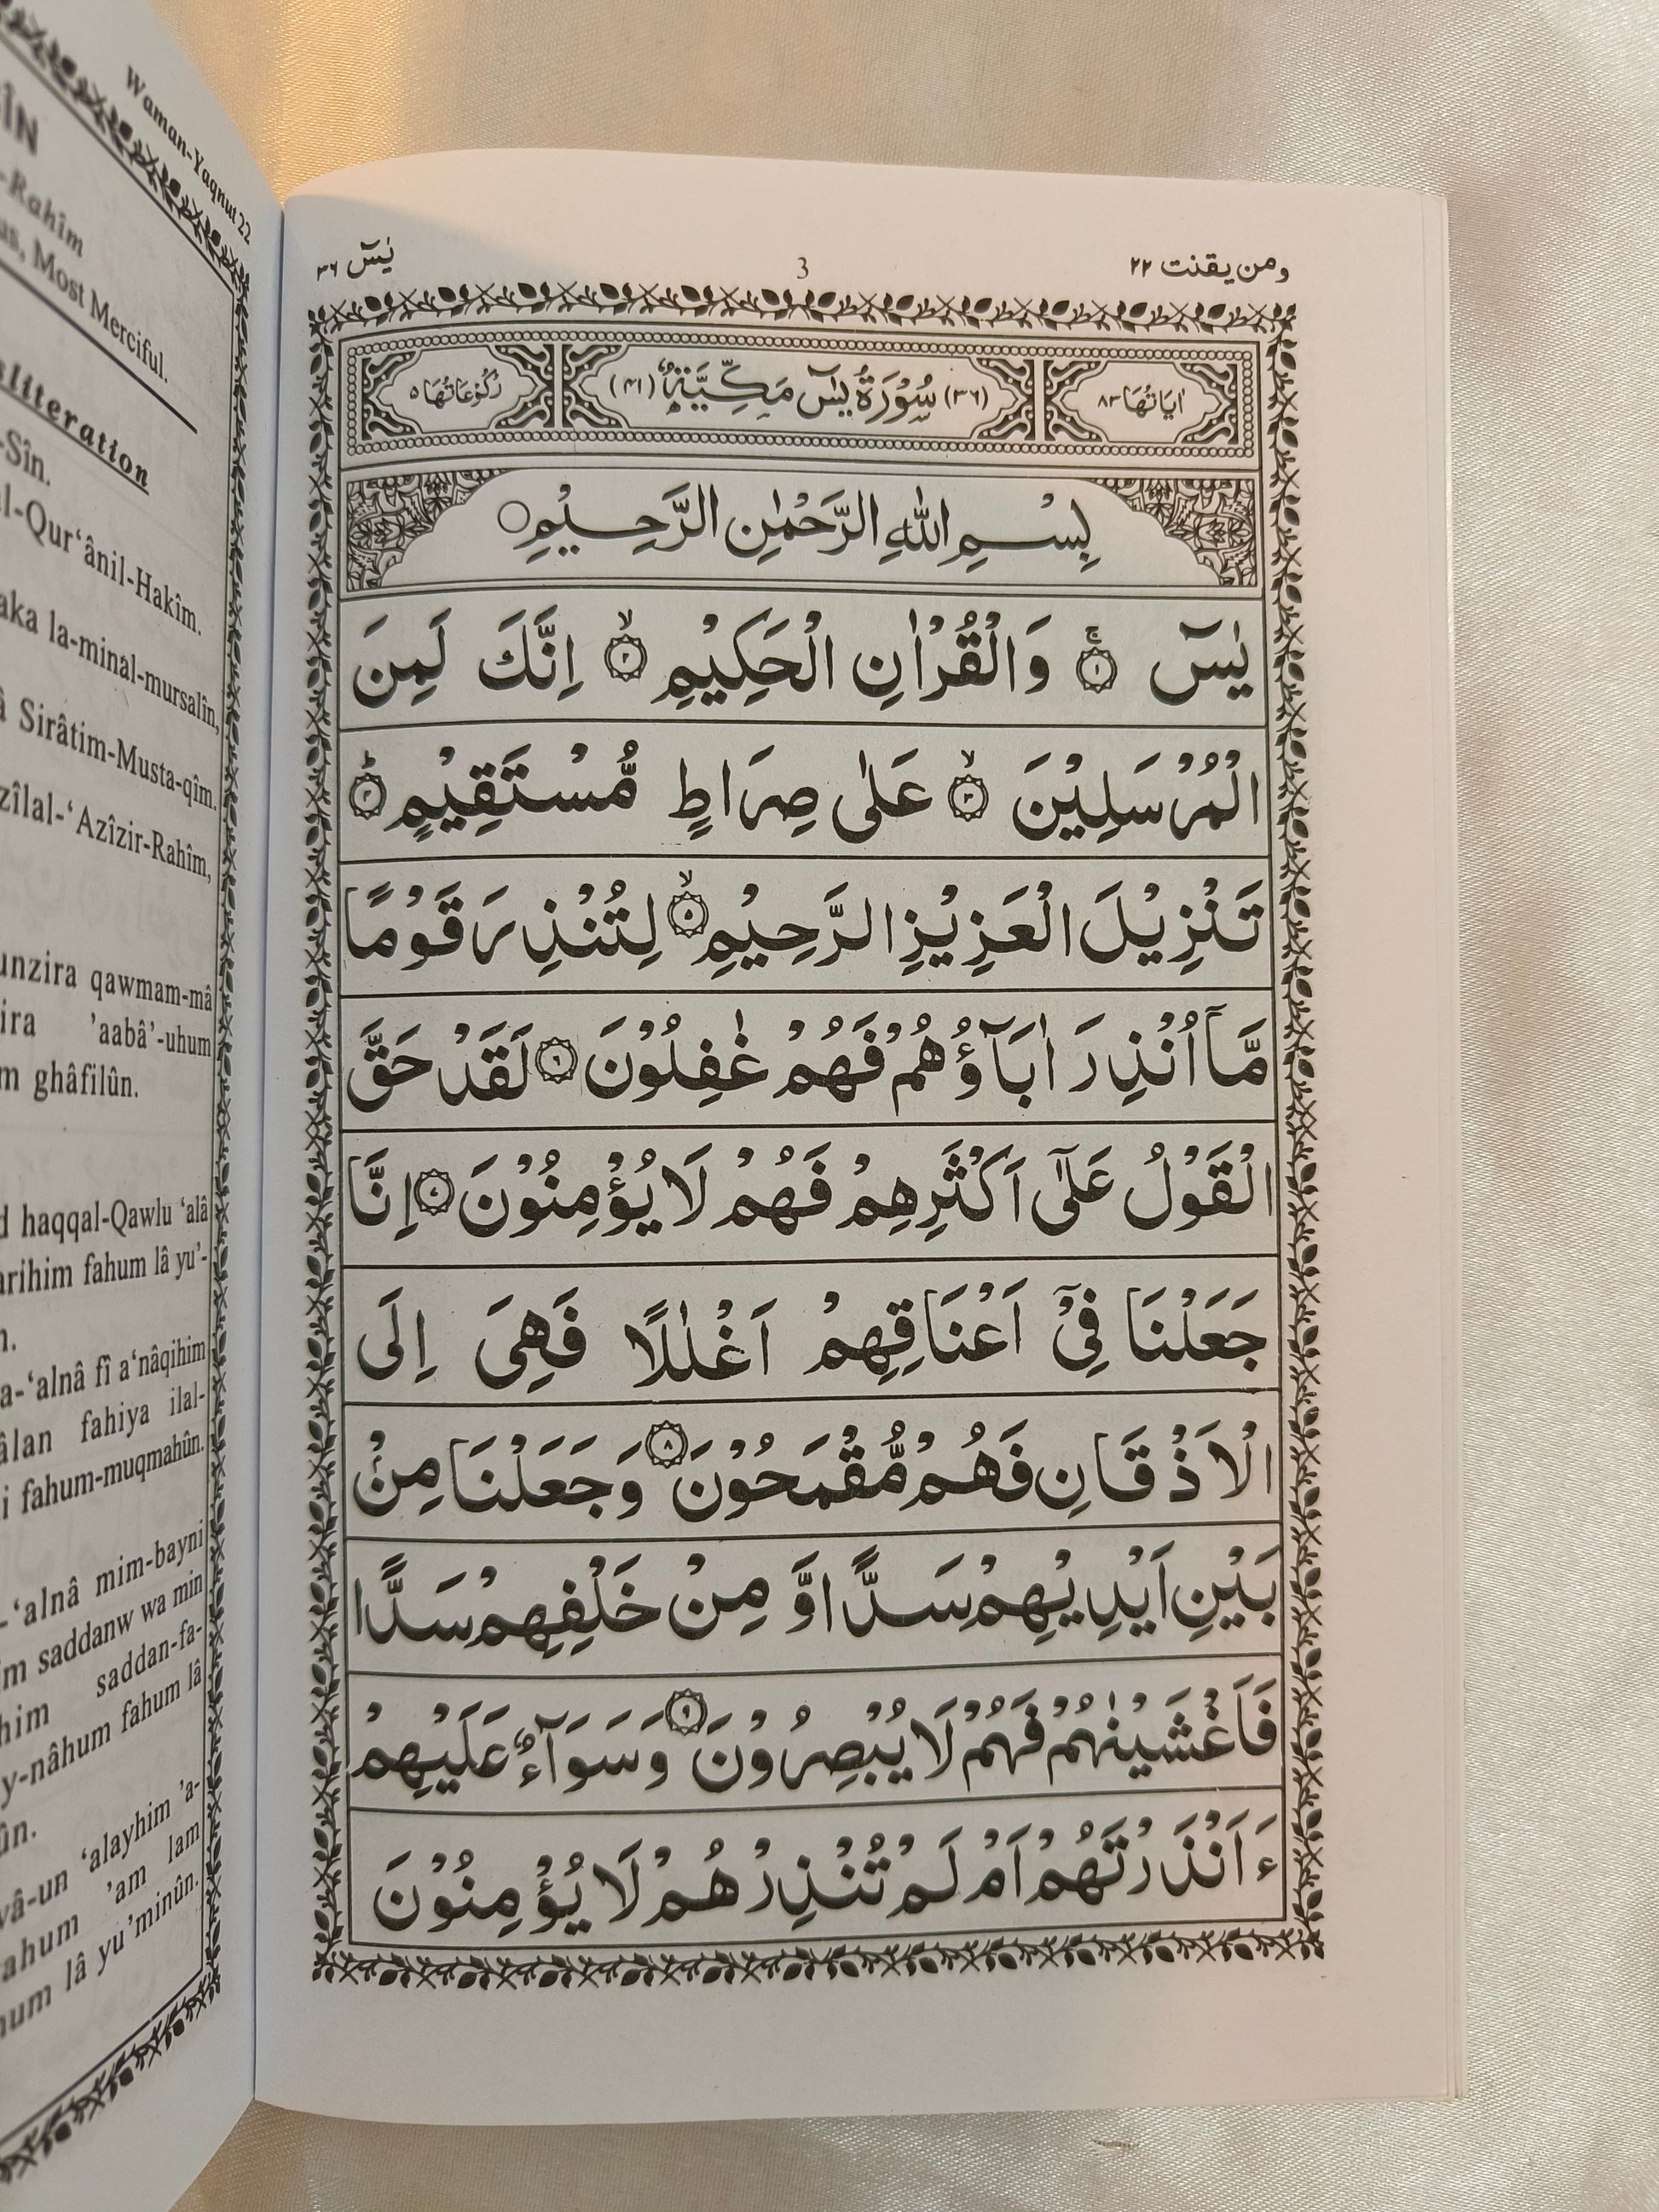 Waman-Yaqnut 22
ÎN
-Rahîm
us, Most Merciful.
sliteration
-Sîn.
l-Qur‘ânil-Hakîm.
aka la-minal-mursalîn,
â Sirâtim-Musta-qîm.
zîlal-‘Azîzir-Rahîm,
unzira qawmam-mâ
ira ’aabâ’-uhum
m ghâfilûn.
d haqqal-Qawlu ‘alâ
arihim fahum lâ yu’-
n.
a-‘alnâ fî a‘nâqihim
âlan fahiya ilal-
i fahum-muqmahûn.
-‘alnâ mim-bayni
im saddanw wa min
him saddan-fa-
y-nâhum fahum lâ
ûn.
vâ-un ‘alayhim ’a-
ahum ’am lam
hum lâ yu’minûn.
ومن يقنت ۲۲
3
يٰسٓ ۳۶
اٰيَاتُهَا ۸۳
(۳۶) سُوْرَةُ يٰسٓ مَكِّيَّةٌ (۴۱)
رُكُوْعَاتُهَا ۵
بِسْمِ اللّٰهِ الرَّحْمٰنِ الرَّحِيْمِ ○
يٰسٓ ۚ﴿۱﴾ وَالْقُرْاٰنِ الْحَكِيْمِ ۙ﴿۲﴾ اِنَّكَ لَمِنَ
الْمُرْسَلِيْنَ ۙ﴿۳﴾ عَلٰى صِرَاطٍ مُّسْتَقِيْمٍ ؕ﴿۴﴾
تَنْزِيْلَ الْعَزِيْزِ الرَّحِيْمِ ۙ﴿۵﴾ لِتُنْذِرَ قَوْمًا
مَّاۤ اُنْذِرَ اٰبَآؤُهُمْ فَهُمْ غٰفِلُوْنَ ﴿۶﴾ لَقَدْ حَقَّ
الْقَوْلُ عَلٰۤى اَكْثَرِهِمْ فَهُمْ لَا يُؤْمِنُوْنَ ﴿۷﴾ اِنَّا
جَعَلْنَا فِيْۤ اَعْنَاقِهِمْ اَغْلٰلًا فَهِيَ اِلَى
الْاَذْقَانِ فَهُمْ مُّقْمَحُوْنَ ﴿۸﴾ وَجَعَلْنَا مِنْۢ
بَيْنِ اَيْدِيْهِمْ سَدًّا وَّ مِنْ خَلْفِهِمْ سَدًّا
فَاَغْشَيْنٰهُمْ فَهُمْ لَا يُبْصِرُوْنَ ﴿۹﴾ وَسَوَآءٌ عَلَيْهِمْ
ءَاَنْذَرْتَهُمْ اَمْ لَمْ تُنْذِرْهُمْ لَا يُؤْمِنُوْنَ